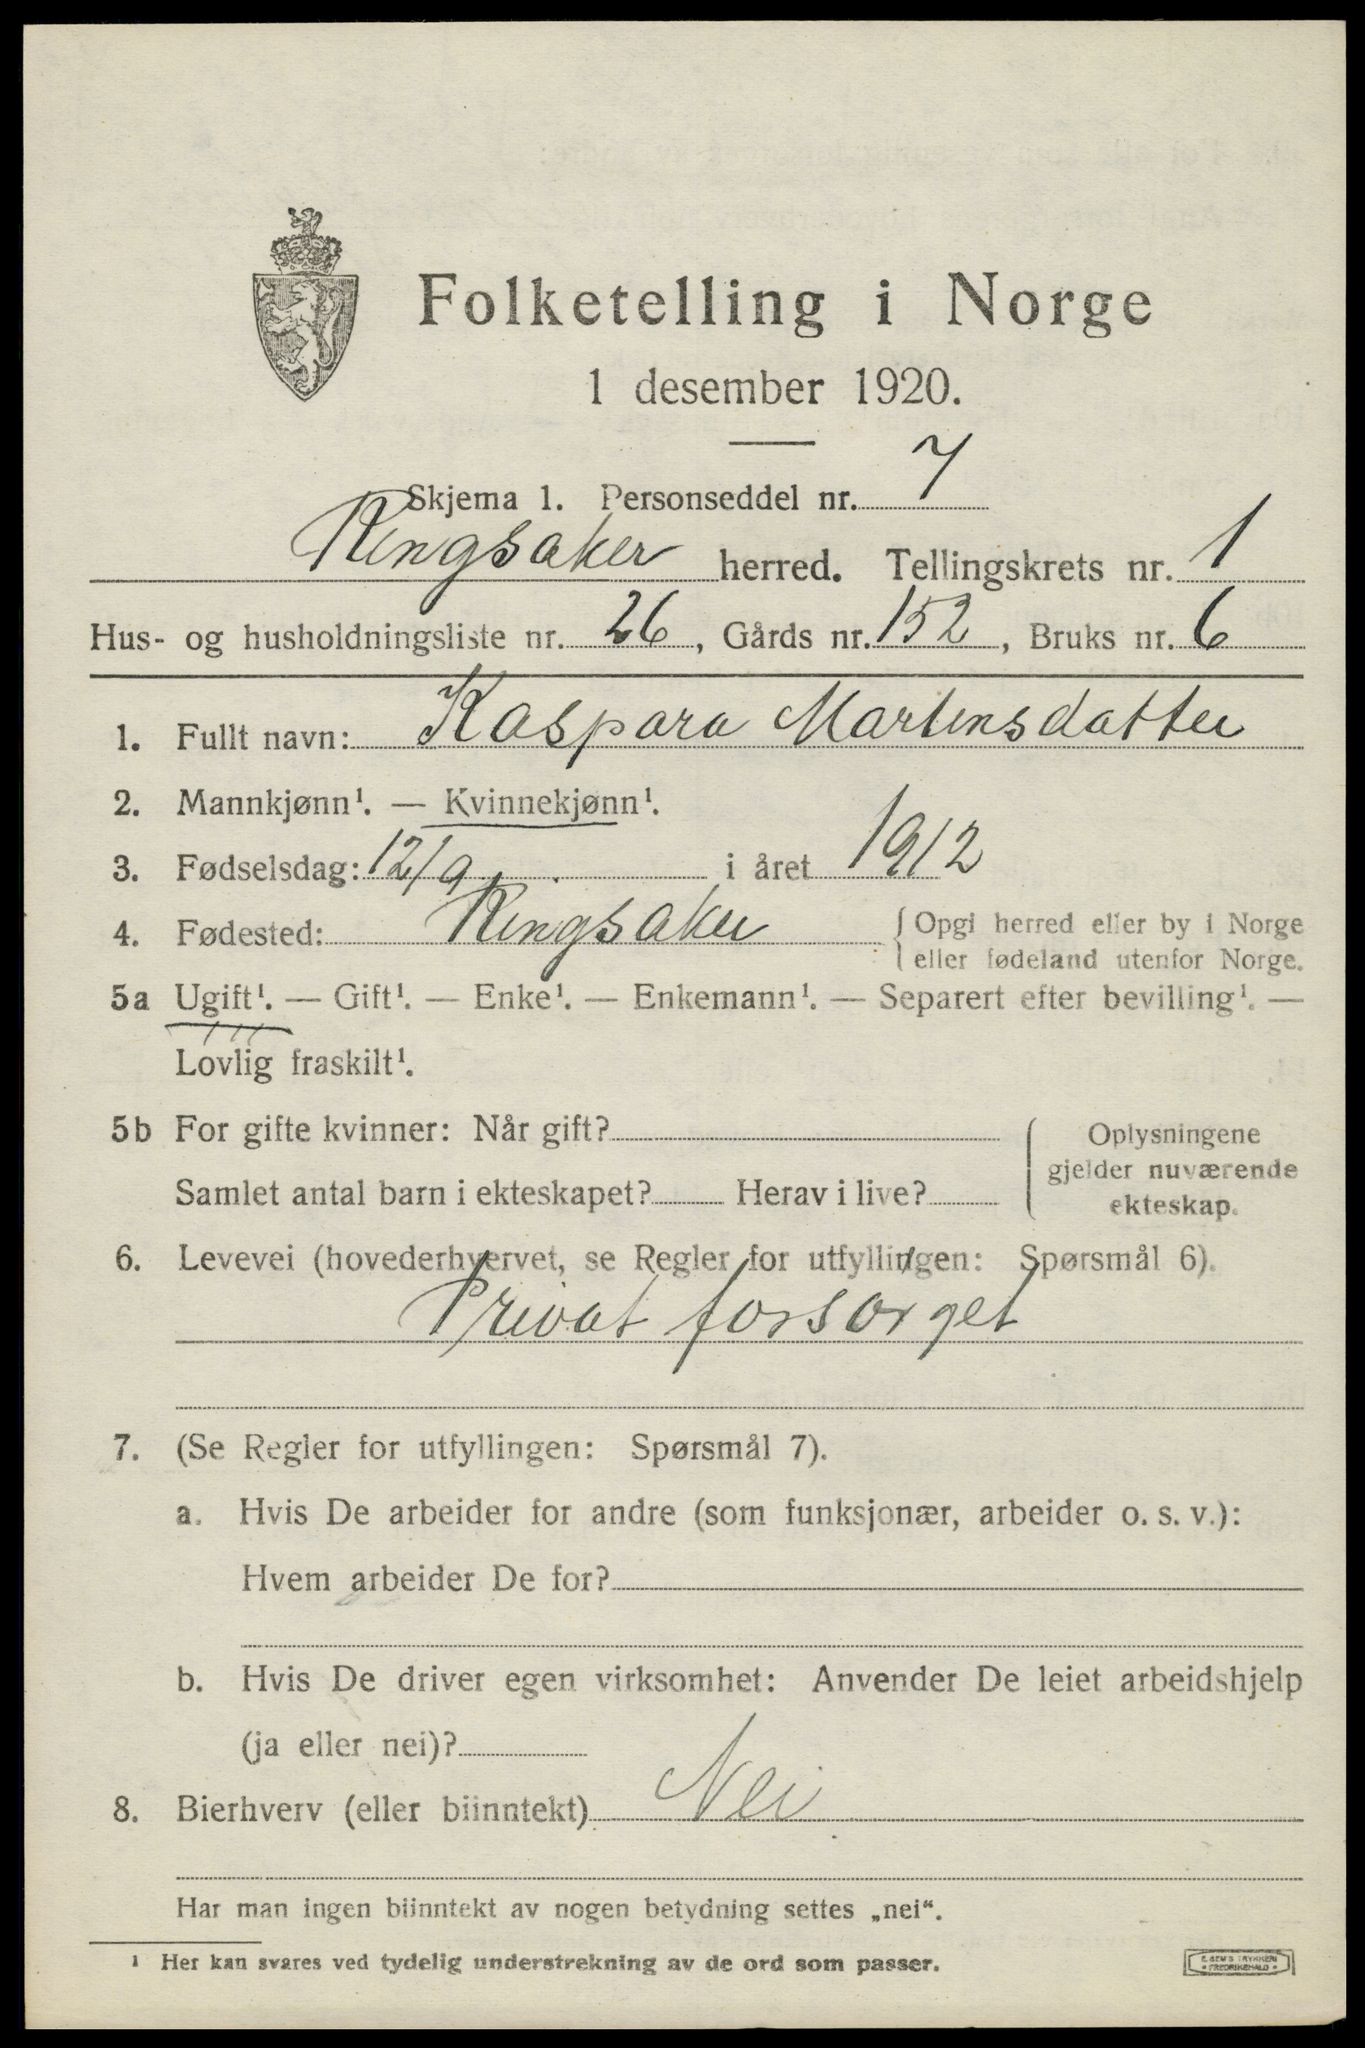 Folketelling i Norge
1 desember 1920.
Skjema 1. Personseddel nr. 7
Ringsaker herred. Tellingskrets nr. 1
Hus- og husholdningsliste nr. 26, Gårds nr. 152, Bruks nr. 6
1. Fullt navn: Kaspara Martinsdatter
2. Mannkjønn¹. — Kvinnekjønn¹.
3. Fødselsdag: 12/9 i året 1912
4. Fødested: Ringsaker { Opgi herred eller by i Norge
eller fødeland utenfor Norge.
5a Ugift¹. — Gift¹. — Enke¹. — Enkemann¹. — Separert efter bevilling¹. —
Lovlig fraskilt¹.
5b For gifte kvinner: Når gift?
Samlet antal barn i ekteskapet? Herav i live?
Oplysningene
gjelder nuværende
ekteskap.
6. Levevei (hovederhvervet, se Regler for utfyllingen: Spørsmål 6).
Privat forsørget
7. (Se Regler for utfyllingen: Spørsmål 7).
a. Hvis De arbeider for andre (som funksjonær, arbeider o. s. v.):
Hvem arbeider De for?
b. Hvis De driver egen virksomhet: Anvender De leiet arbeidshjelp
(ja eller nei)?
8. Bierhverv (eller biinntekt) Nei
Har man ingen biinntekt av nogen betydning settes „nei“.
¹ Her kan svares ved tydelig understrekning av de ord som passer.
E. SEM'S TRYKKERI
FREDRIKSHALD